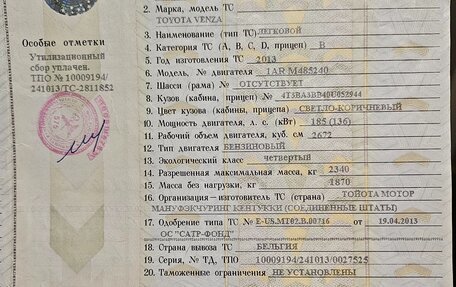 2. Марка, модель ТС
TOYOTA VENZA
3. Наименование (тип ТС) ЛЕГКОВОЙ
4. Категория ТС (А, В, С, D, прицеп) В
5. Год изготовления ТС 2013
6. Модель, № двигателя 1AR M485240
7. Шасси (рама) № ОТСУТСТВУЕТ
8. Кузов (кабина, прицеп) №
9. Цвет кузова (кабины, прицепа) СВЕТЛО-КОРИЧНЕВЫЙ
10. Мощность двигателя, л. с. (кВт) 185 (136)
11. Рабочий объем двигателя, куб. см 2672
12. Тип двигателя БЕНЗИНОВЫЙ
13. Экологический класс четвертый
14. Разрешенная максимальная масса, кг 2340
15. Масса без нагрузки, кг 1870
16. Организация—изготовитель ТС (страна) ТОЙОТА МОТОР
МАНУФЭКЧУРИНГ КЕНТУККИ (СОЕДИНЕННЫЕ ШТАТЫ)
17. Одобрение типа ТС № E-US.MT02.B.00716 от 19.04.2013
ОС "САТР-ФОНД"
18. Страна вывоза ТС БЕЛЬГИЯ
19. Серия, № ТД, ТПО 10009194/241013/0027525
20. Таможенные ограничения НЕ УСТАНОВЛЕНЫ
Особые отметки
Утилизационный
сбор уплачен.
ТПО № 10009194/
241013/ТС-2811852